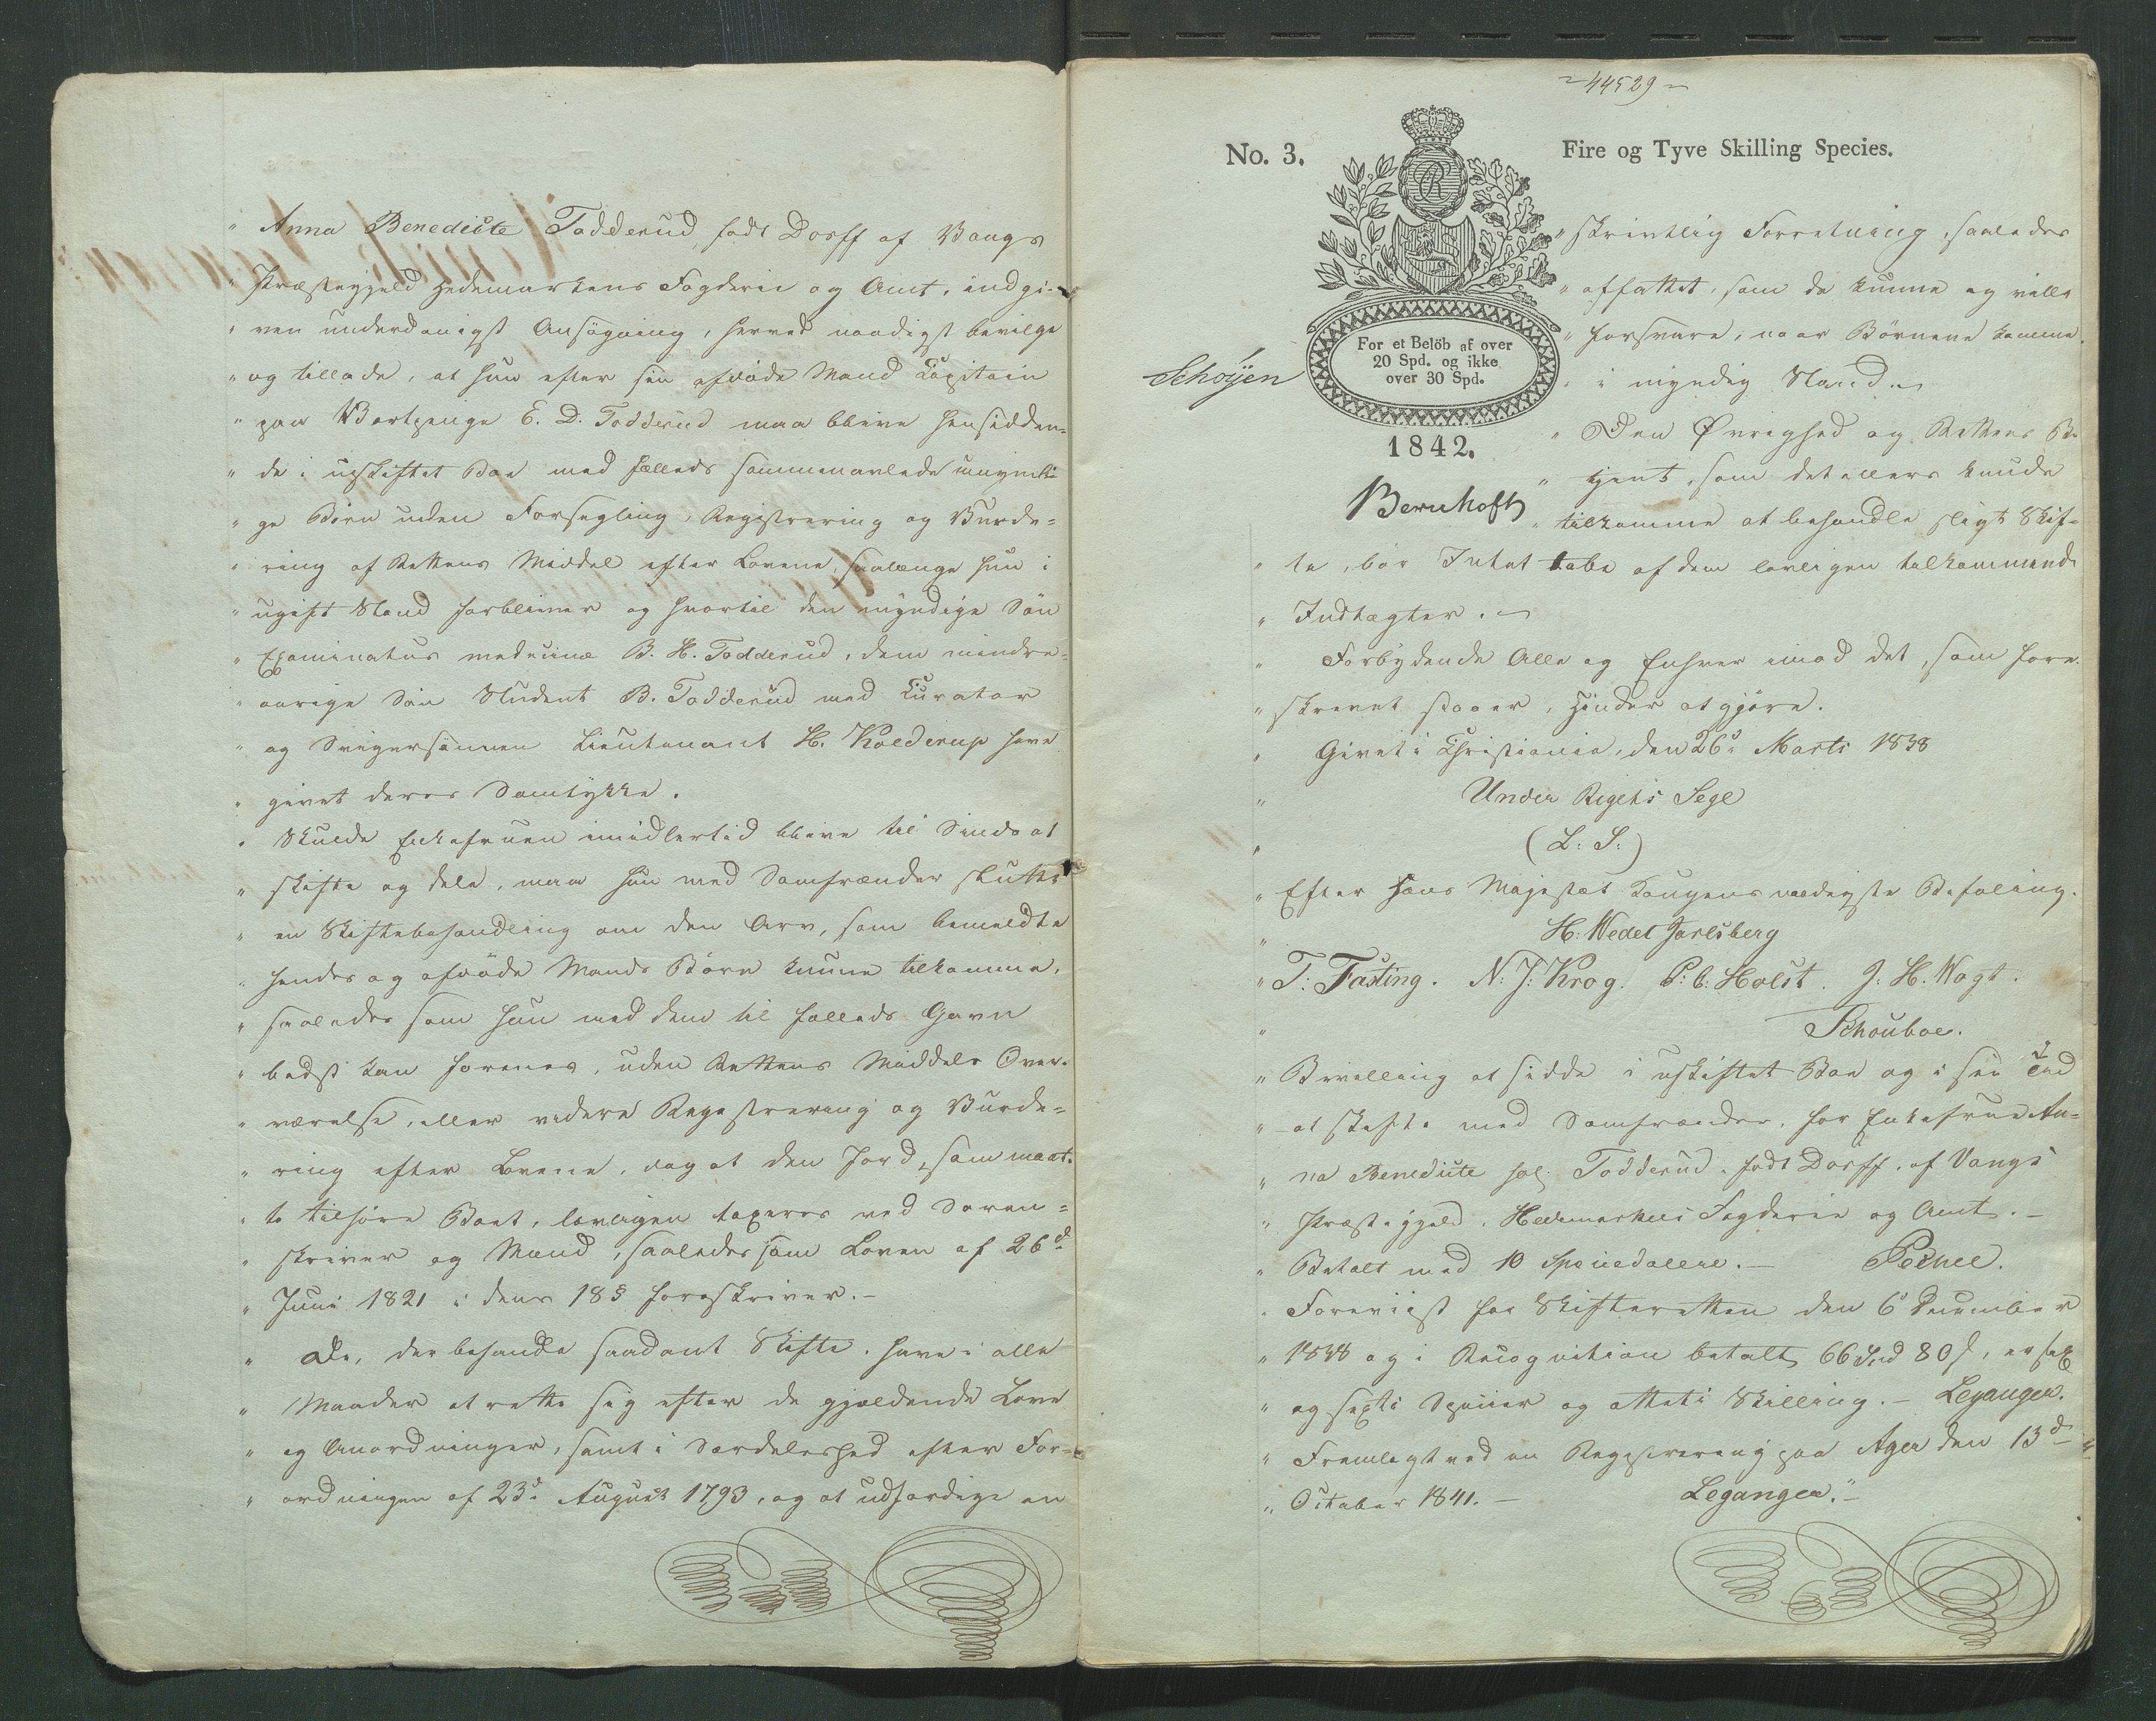 " Anna Benedicte Todderud, født Dorff af Vangs
" Præstegjeld Hedemarkens Fogderie og Amt, indgi-
" ven underdanigst Ansøgning, herved naadigst bevilge
" og tillade, at hun efter sin afdøde Mand Capitain
" paa Vartpenge E. D. Todderud maa blive hensidden-
" de i uskiftet Boe med fælleds sammenavlede umyndi-
" ge Børn uden Forsegling, Registrering og Vurde=
" ring af Rettens Middel efter Lovene, saalænge hun i
" ugift Stand forbliver og hvortil den myndige Søn
" Examinatus medicinæ B. H. Todderud, dem mindre-
" aarige Søn Student B. Todderud med Curator
" og Svigersønnen Lieutenant H. Kolderup have
" givet deres Samtykke.
" Skulde Enkefruen imidlertid blive til Sinds at
" skifte og dele, maa hun med Samfrænder slutte
" en Skiftebehandling om den Arv, som bemeldte
" hendes og afdøde Mands Børn kunne tilkomme,
" saaledes som hun med dem til fælleds Gavn
" bedst kan forenes, uden Rettens Middels Over-
" værelse, eller videre Registrering og Vurde=
" ring efter Lovene, dog at den Jord, som maat-
" te tilhøre Boet, lovligen taxeres ved Soren=
" skriver og Mænd, saaledes som Loven af 26d
" Juni 1821 i dens 18 § foreskriver.-
" De, der behandle saadant Skifte, have i alle
" Maader at rette sig efter de gjældende Love
" og Anordninger, samt i Særdeleshed efter For-
" ordningen af 23d August 1793, og at udfærdige en
44529
No. 3.
Fire og Tyve Skilling Species.
For et Belöb af over
20 Spd. og ikke
over 30 Spd.
1842.
Schøyen
Bernhoft
" skriftlig Forretning, saaledes
" affattet, som de kunne og ville
" forsvare, naar Børnene komme
" i myndig Stand.
" Den Øvrighed og Rettens Be
" tjent, som det ellers kunde
" tilkomme at behandle sligt Skif=
" te, bør Intet tabe af dem lovligen tilkommende
" Indtægter.
" Forbydende Alle og Enhver imod det, som fore-
" skrevet staaer, Hinder at gjøre.
" Givet i Christiania, den 26d Marts 1838
" Under Rigets Segl
" (L: S:)
" Efter Hans Majestæt Kongens naadigste Befaling.
" H: Wedel Jarlsberg
" T: Fasting. N: J: Krog. P: C: Holst. J: H. Vogt.
" Schouboe.
" Bevilling at sidde i uskiftet Boe og i sin Tid
" at skifte med Samfrænder, for Enkefrue An=
" na Benedicte sal. Todderud, født Dorff, af Vangs
" Præstegjeld, Hedemarkens Fogderie og Amt.-
" Betalt med 10 Speciedalere.-
" Foreviist for Skifteretten den 6 December
" 1838 og i Recognition betalt 66 Spd 80 s, er sex
" og sexti Specier og otteti Skilling.- Leganger.
" Fremlagt ved en Registrering paa Ager den 13d
" October 1841.- Leganger."-